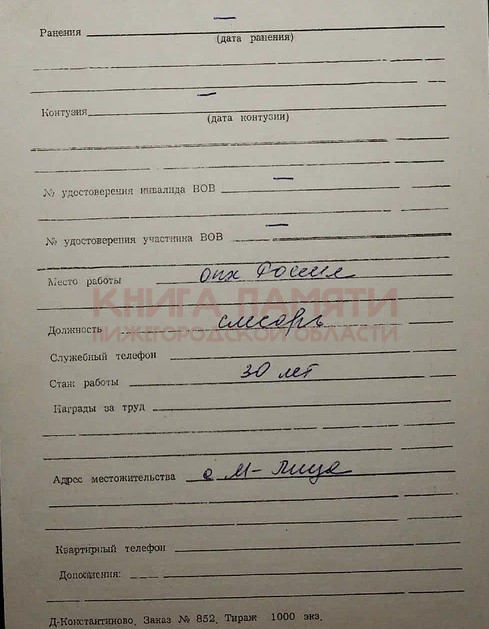 Ранения —
(дата ранения)
Контузия —
(дата контузии)
№ удостоверения инвалида ВОВ —
№ удостоверения участника ВОВ —
Место работы опх Россия
КНИГА ПАМЯТИ
НИЖЕГОРОДСКОЙ ОБЛАСТИ
Должность слесарь
Служебный телефон
Стаж работы 30 лет
Награды за труд
Адрес местожительства с М-Пица
Квартирный телефон
Дополнения:
Д-Константиново, Заказ № 852. Тираж 1000 экз.